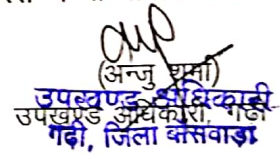 (अन्जु शर्मा)
उपखण्ड अधिकारी
उपखण्ड अधिकारी, गढी
गढी, जिला बांसवाड़ा